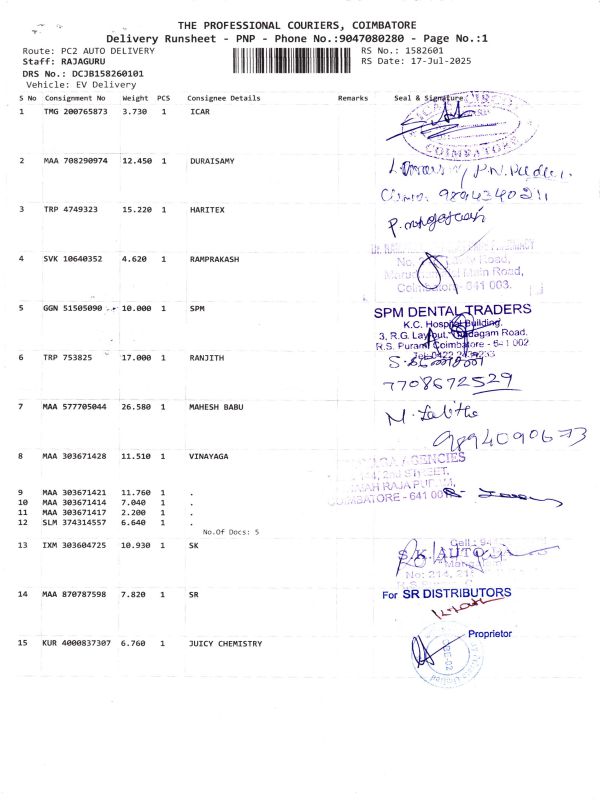 THE PROFESSIONAL COURIERS, COIMBATORE
Delivery Runsheet - PNP - Phone No.:9047080280 - Page No.:1
Route: PC2 AUTO DELIVERY
RS No.: 1582601
Staff: RAJAGURU
RS Date: 17-Jul-2025
DRS No.: DCJB158260101
Vehicle: EV Delivery
S No Consignment No Weight PCS Consignee Details Remarks Seal & Signature
1 TMG 200765873 3.730 1 ICAR
COIMBATORE
2 MAA 708290974 12.450 1 DURAISAMY
9894340211
3 TRP 4749323 15.220 1 HARITEX
4 SVK 10640352 4.620 1 RAMPRAKASH
Main Road,
Coimbatore - 641 003.
5 GGN 51505090 10.000 1 SPM
SPM DENTAL TRADERS
K.C. Hospital Building,
3, R.G. Layout, Thadagam Road,
R.S. Puram, Coimbatore - 641 002
6 TRP 753825 17.000 1 RANJITH
7708672529
7 MAA 577705044 26.580 1 MAHESH BABU
M. Lalitha
9894090673
8 MAA 303671428 11.510 1 VINAYAGA
AGENCIES
STREET,
COIMBATORE - 641 001
9 MAA 303671421 11.760 1 .
10 MAA 303671414 7.040 1 .
11 MAA 303671417 2.200 1 .
12 SLM 374314557 6.640 1 .
No.Of Docs: 5
13 IXM 303604725 10.930 1 SK
S.K. AUTO
14 MAA 870787598 7.820 1 SR
For SR DISTRIBUTORS
Proprietor
15 KUR 4000837307 6.760 1 JUICY CHEMISTRY